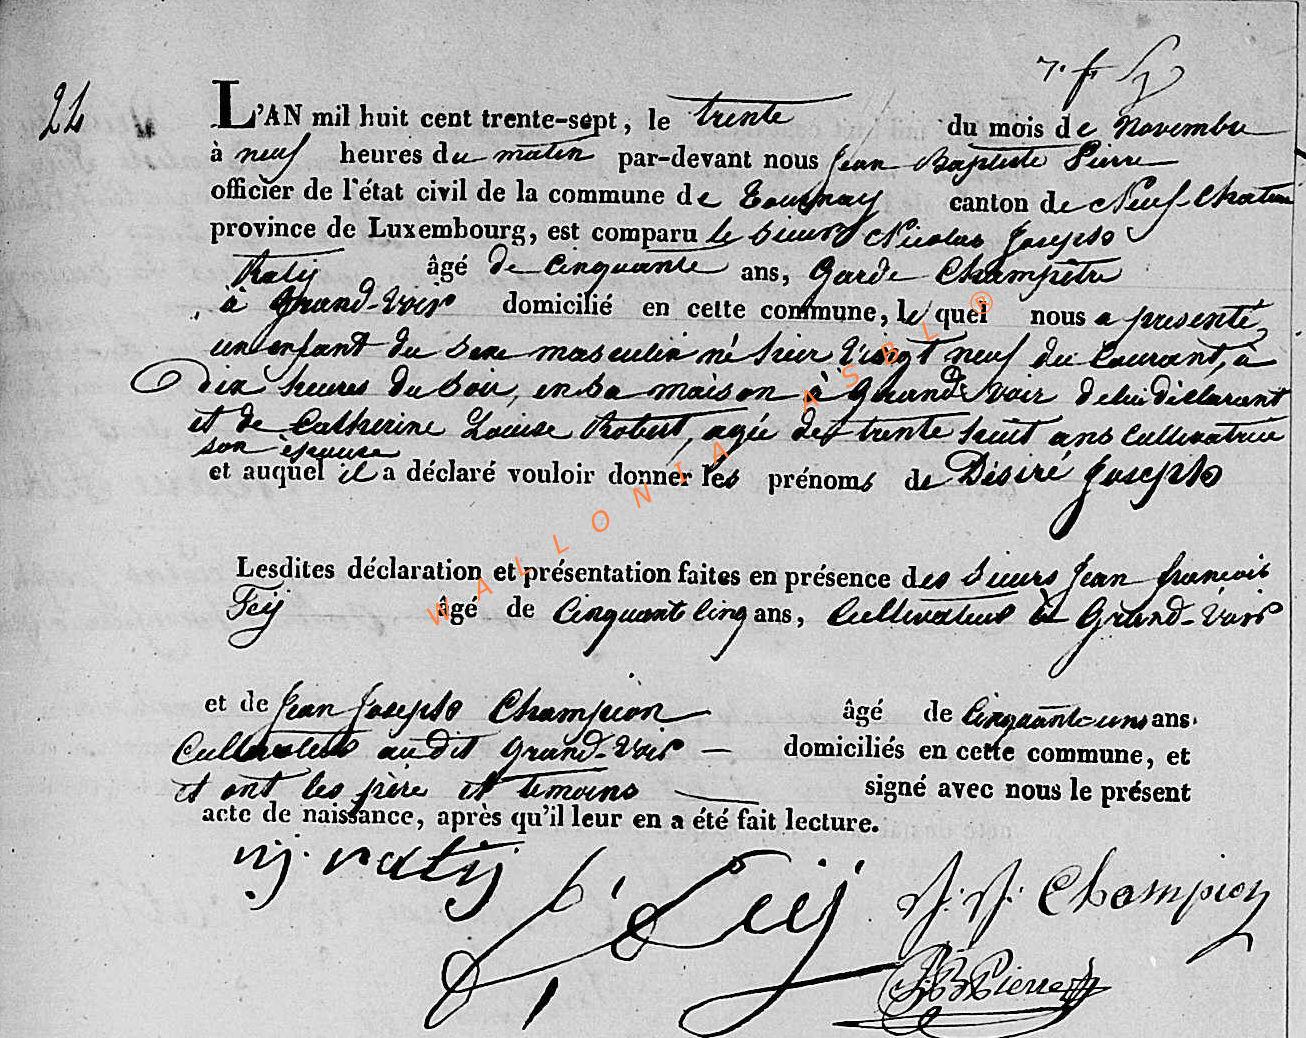 22
L'AN mil huit cent trente-sept, le trente du mois de Novembre
à neuf heures du matin par-devant nous Jean Baptiste Pierre
officier de l'état civil de la commune de Tournay canton de Neuf-Chateau
province de Luxembourg, est comparu le Sieur Nicolas Joseph
Ratij âgé de Cinquante ans, Garde Champêtre
à Grand-Voir domicilié en cette commune, lequel nous a presenté
un enfant du Sexe masculin né hier Vingt neuf du Courant, à
dix heures du Soir, en Sa maison à Grand Voir de lui déclarant
et de Catherine Louise Robert, agée de trente huit ans Cultivatrice
son épouse
et auquel il a déclaré vouloir donner les prénoms de Désiré Joseph
Lesdites déclaration et présentation faites en présence des Sieurs Jean françois
Feij âgé de Cinquante Cinq ans, Cultivateur à Grand-Voir
et de Jean Joseph Champion âgé de Cinquante-un ans.
Cultivateur au dit Grand-Voir domiciliés en cette commune, et
et ont les père et témoins signé avec nous le présent
acte de naissance, après qu'il leur en a été fait lecture.
nj. ratij J. J. Champion
JB Pierre
WALLONIA ASBL ®